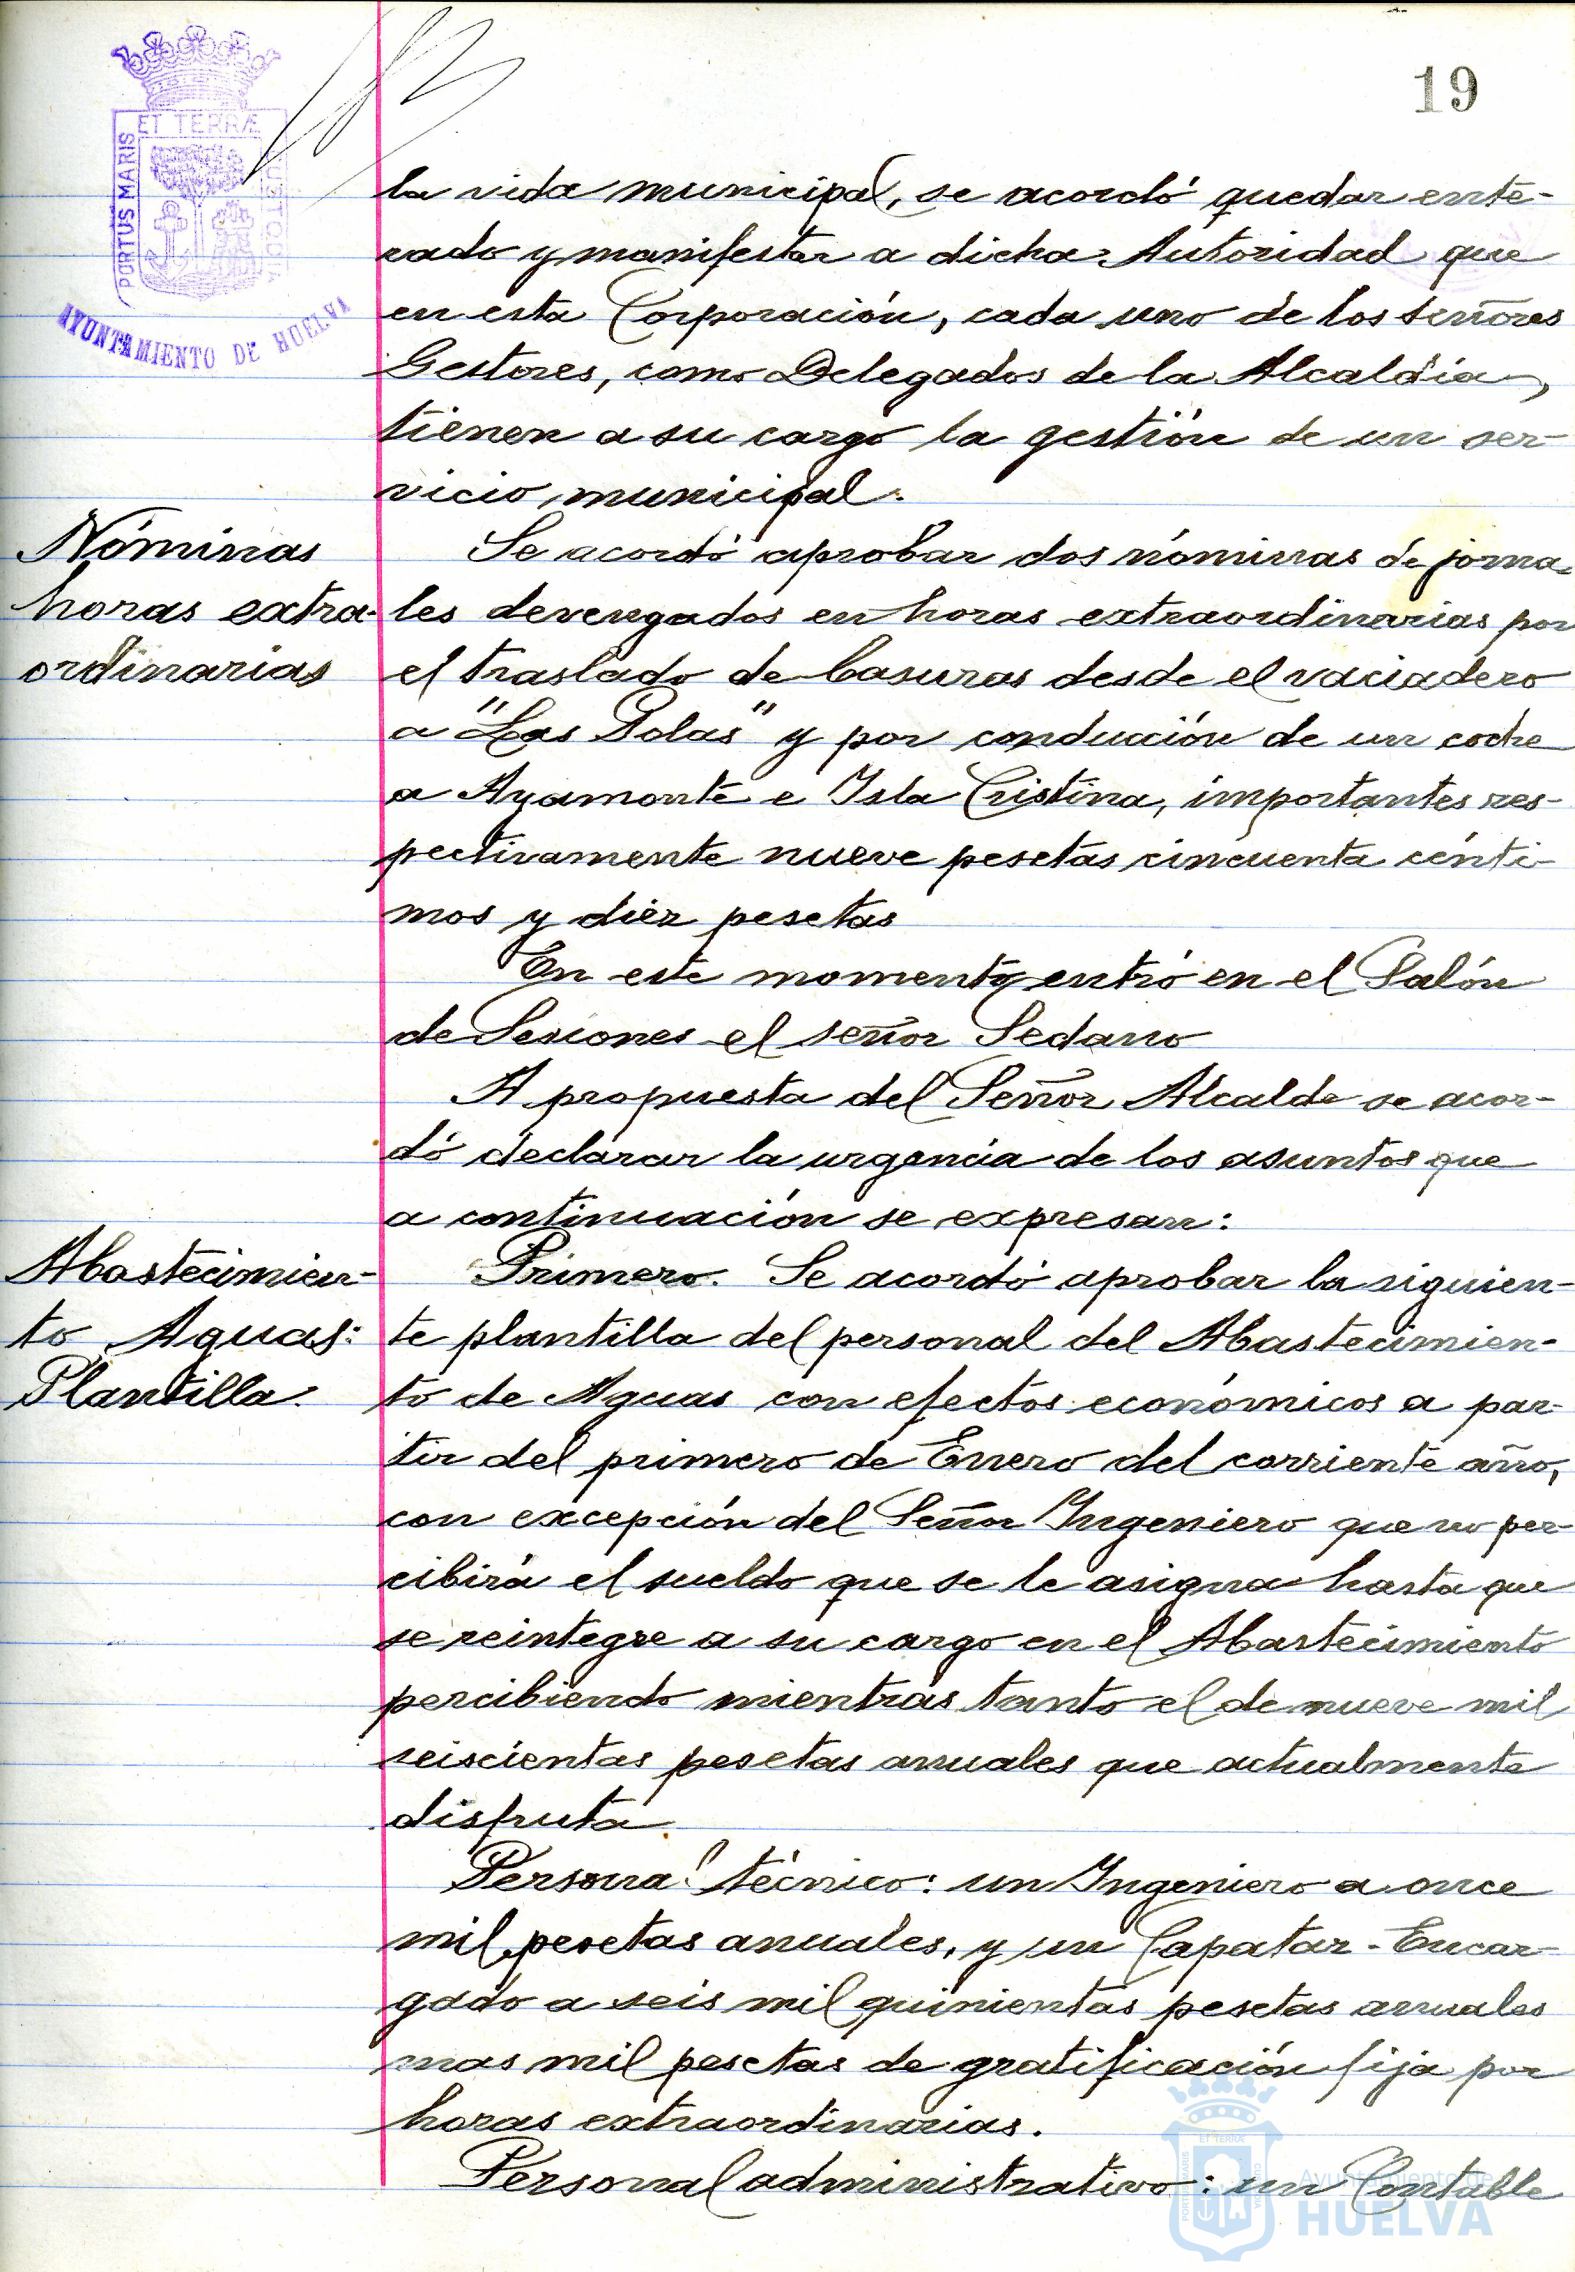 19
ET TERRÆ
PORTUS MARIS
CUSTODIA
AYUNTAMIENTO DE HUELVA
la vida municipal, se acordó quedar ente-
rado y manifestar a dicha Autoridad que
en esta Corporación, cada uno de los señores
Gestores, como Delegados de la Alcaldía,
tienen a su cargo la gestión de un ser-
vicio municipal.
Nóminas
horas extra-
ordinarias
Se acordó aprobar dos nóminas de jorna-
les devengados en horas extraordinarias por
el traslado de basuras desde el vaciadero
a "Las Bolas" y por conducción de un coche
a Ayamonte e Isla Cristina, importantes res-
pectivamente nueve pesetas cincuenta cénti-
mos y diez pesetas
En este momento entró en el Salón
de Sesiones el señor Sedano
A propuesta del Señor Alcalde se acor-
dó declarar la urgencia de los asuntos que
a continuación se expresan:
Abastecimien-
to Aguas:
Plantilla.
Primero. Se acordó aprobar la siguien-
te plantilla del personal del Abastecimien-
to de Aguas con efectos económicos a par-
tir del primero de Enero del corriente año,
con excepción del Señor Ingeniero que no per-
cibirá el sueldo que se le asigna hasta que
se reintegre a su cargo en el Abastecimiento
percibiendo mientras tanto el de nueve mil
seiscientas pesetas anuales que actualmente
disfruta.
Personal técnico: un Ingeniero a once
mil pesetas anuales, y un Capataz-Encar-
gado a seis mil quinientas pesetas anuales
mas mil pesetas de gratificación fija por
horas extraordinarias.
Personal administrativo: un Contable
Ayuntamiento de
HUELVA